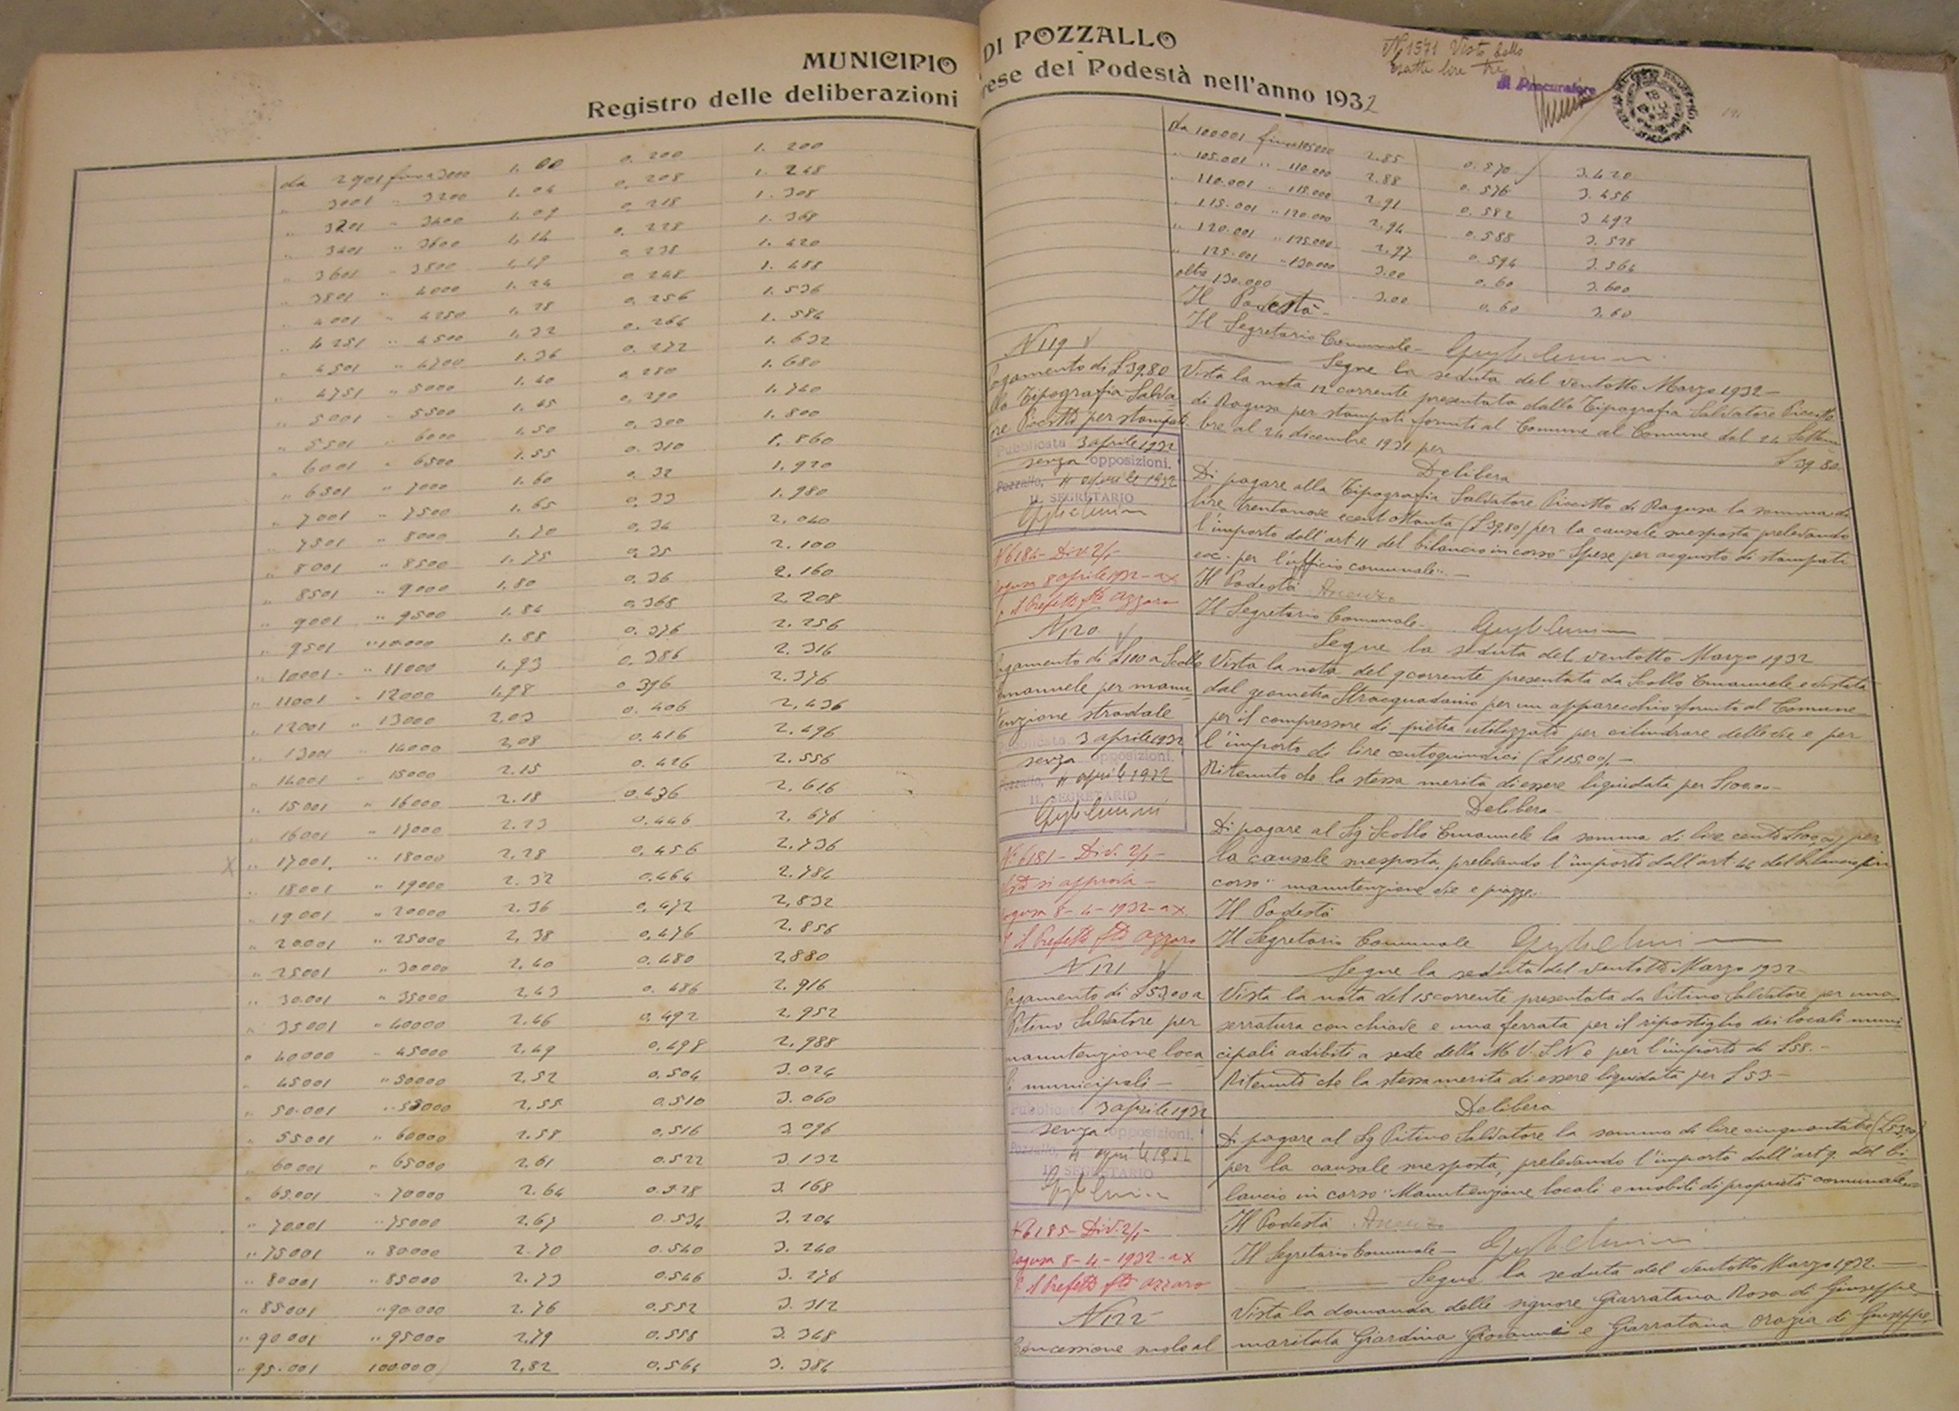 MUNICIPIO DI POZZALLO
Registro delle deliberazioni prese del Podestà nell'anno 1932
N 1571 Visto bollo
esatte lire tre
Il Procuratore
da 2901 fino a 3000 1.00 0.200 1.200
" 3001 " 3200 1.04 0.208 1.248
" 3201 " 3400 1.09 0.218 1.308
" 3401 " 3600 1.14 0.228 1.368
" 3601 " 3800 1.19 0.238 1.420
" 3801 " 4000 1.24 0.248 1.488
" 4001 " 4250 1.28 0.256 1.536
" 4251 " 4500 1.32 0.264 1.584
" 4501 " 4700 1.36 0.272 1.632
" 4751 " 5000 1.40 0.280 1.680
" 5001 " 5500 1.45 0.290 1.740
" 5501 " 6000 1.50 0.300 1.800
" 6001 " 6500 1.55 0.310 1.860
" 6501 " 7000 1.60 0.32 1.920
" 7001 " 7500 1.65 0.33 1.980
" 7501 " 8000 1.70 0.34 2.040
" 8001 " 8500 1.75 0.35 2.100
" 8501 " 9000 1.80 0.36 2.160
" 9001 " 9500 1.84 0.368 2.208
" 9501 " 10.000 1.88 0.376 2.256
" 10001 " 11000 1.93 0.386 2.316
" 11001 " 12000 1.98 0.396 2.376
" 12001 " 13000 2.03 0.406 2.436
" 13001 " 14000 2.08 0.416 2.496
" 14001 " 15000 2.15 0.426 2.556
" 15001 " 16000 2.18 0.436 2.616
" 16001 " 17000 2.23 0.446 2.676
" 17001 " 18000 2.28 0.456 2.736
" 18001 " 19000 2.32 0.464 2.784
" 19001 " 20000 2.36 0.472 2.832
" 20001 " 25000 2.38 0.476 2.856
" 25001 " 30000 2.40 0.480 2.880
" 30.001 " 35000 2.43 0.486 2.916
" 35001 " 40000 2.46 0.492 2.952
" 40000 " 45000 2.49 0.498 2.988
" 45001 " 50000 2.52 0.504 3.024
" 50.001 " 55000 2.55 0.510 3.060
" 55001 " 60000 2.58 0.516 3.096
" 60001 " 65000 2.61 0.522 3.132
" 65.001 " 70000 2.64 0.528 3.168
" 70001 " 75000 2.67 0.534 3.204
" 75001 " 80.000 2.70 0.540 3.240
" 80001 " 85000 2.73 0.546 3.276
" 85001 " 90.000 2.76 0.552 3.312
" 90001 " 95000 2.79 0.558 3.348
" 95.001 100.000 2.82 0.564 3.384
da 100001 fino 105000 2.85 0.570 3.420
" 105.001 " 110.000 2.88 0.576 3.456
" 110.001 " 115.000 2.91 0.582 3.492
" 115.001 " 120.000 2.94 0.588 3.528
" 120.001 " 125.000 2.97 0.594 3.564
" 125.001 " 130.000 3.00 0.60 3.600
oltre 130.000 3.00 0.60 3.60
Il Podestà
Il Segretario Comunale Guglielmini
N 119
Pagamento di £ 39,80
alla Tipografia Salva-
tore Piccitto per stampati
Pubblicata 3 aprile 1932
senza opposizioni.
Pozzallo, 4 aprile 1932
IL SEGRETARIO
Guglielmini
N 6184 Div. 2/1
Ragusa 8 aprile 1932 - a X
p. il Prefetto fto Azzaro
Segue la seduta del ventotto Marzo 1932
Vista la nota 12 corrente presentata dalla Tipografia Salvatore Piccitto
di Ragusa per stampati forniti al Comune al Comune dal 24 Settem
bre al 24 dicembre 1931 per £ 39.80
Delibera
Di pagare alla Tipografia Salvatore Piccitto di Ragusa la somma di
lire trentanove e cent ottanta (£ 39,80) per la causale mesposta prelevando
l'importo dall'art 11 del bilancio in corso "Spese per acquisto di stampati
ecc. per l'ufficio comunale".
Il Podestà
Il Segretario Comunale Guglielmini
N 120
Pagamento di £ 100 a Scollo
Emanuele per manu-
tenzione stradale
Pubblicata 3 aprile 1932
senza opposizioni.
Pozzallo, 4 aprile 1932
IL SEGRETARIO
Guglielmini
N° 6181 - Div. 2/1
si approva
Ragusa 8-4-1932 - a X
p. il Prefetto fto Azzaro
Segue la seduta del ventotto Marzo 1932
Vista la nota del 9 corrente presentata da Scollo Emanuele e vistata
dal geometra Stracquadanio per un apparecchio fornito al Comune
per il compressore di pietra utilizzato per cilindrare delle vie e per
l'importo di lire centoquindici (£ 115.00)
Ritenuto che la stessa merita di essere liquidata per £ 100.00
Delibera
Di pagare al Sg Scollo Emanuele la somma di lire cento £ 100,00 per
la causale mesposta, prelevando l'importo dall'art 44 del bilancio in
corso "manutenzione vie e piazze.
Il Podestà
Il Segretario Comunale Guglielmini
N 121
Pagamento di £ 53,00 a
Pitino Salvatore per
manutenzione loca
li municipali
Pubblicata 3 aprile 1932
senza opposizioni.
Pozzallo, 4 aprile 1932
IL SEGRETARIO
Guglielmini
N 6185 - Div. 2/1
Ragusa 8-4-1932 - a X
p. il Prefetto fto Azzaro
Segue la seduta del ventotto Marzo 1932
Vista la nota del 15 corrente presentata da Pitino Salvatore per una
serratura con chiave e una ferrata per il ripostiglio dei locali muni
cipali adibiti a sede della M V S N e per l'importo di £ 58.
Ritenuto che la stessa merita di essere liquidata per £ 53
Delibera
Di pagare al Sg Pitino Salvatore la somma di lire cinquantatre (£ 53,00)
per la causale mesposta, prelevando l'importo dall'art 9 del bi-
lancio in corso "Manutenzione locali e mobili di proprietà comunale
Il Podestà
Il Segretario Comunale Guglielmini
N 122
Concessione suolo al
Segue la seduta del ventotto Marzo 1932
Vista la domanda delle signore Giarratana Rosa di Giuseppe
maritata Giardina Giovanni e Giarratana Orazia di Giuseppe